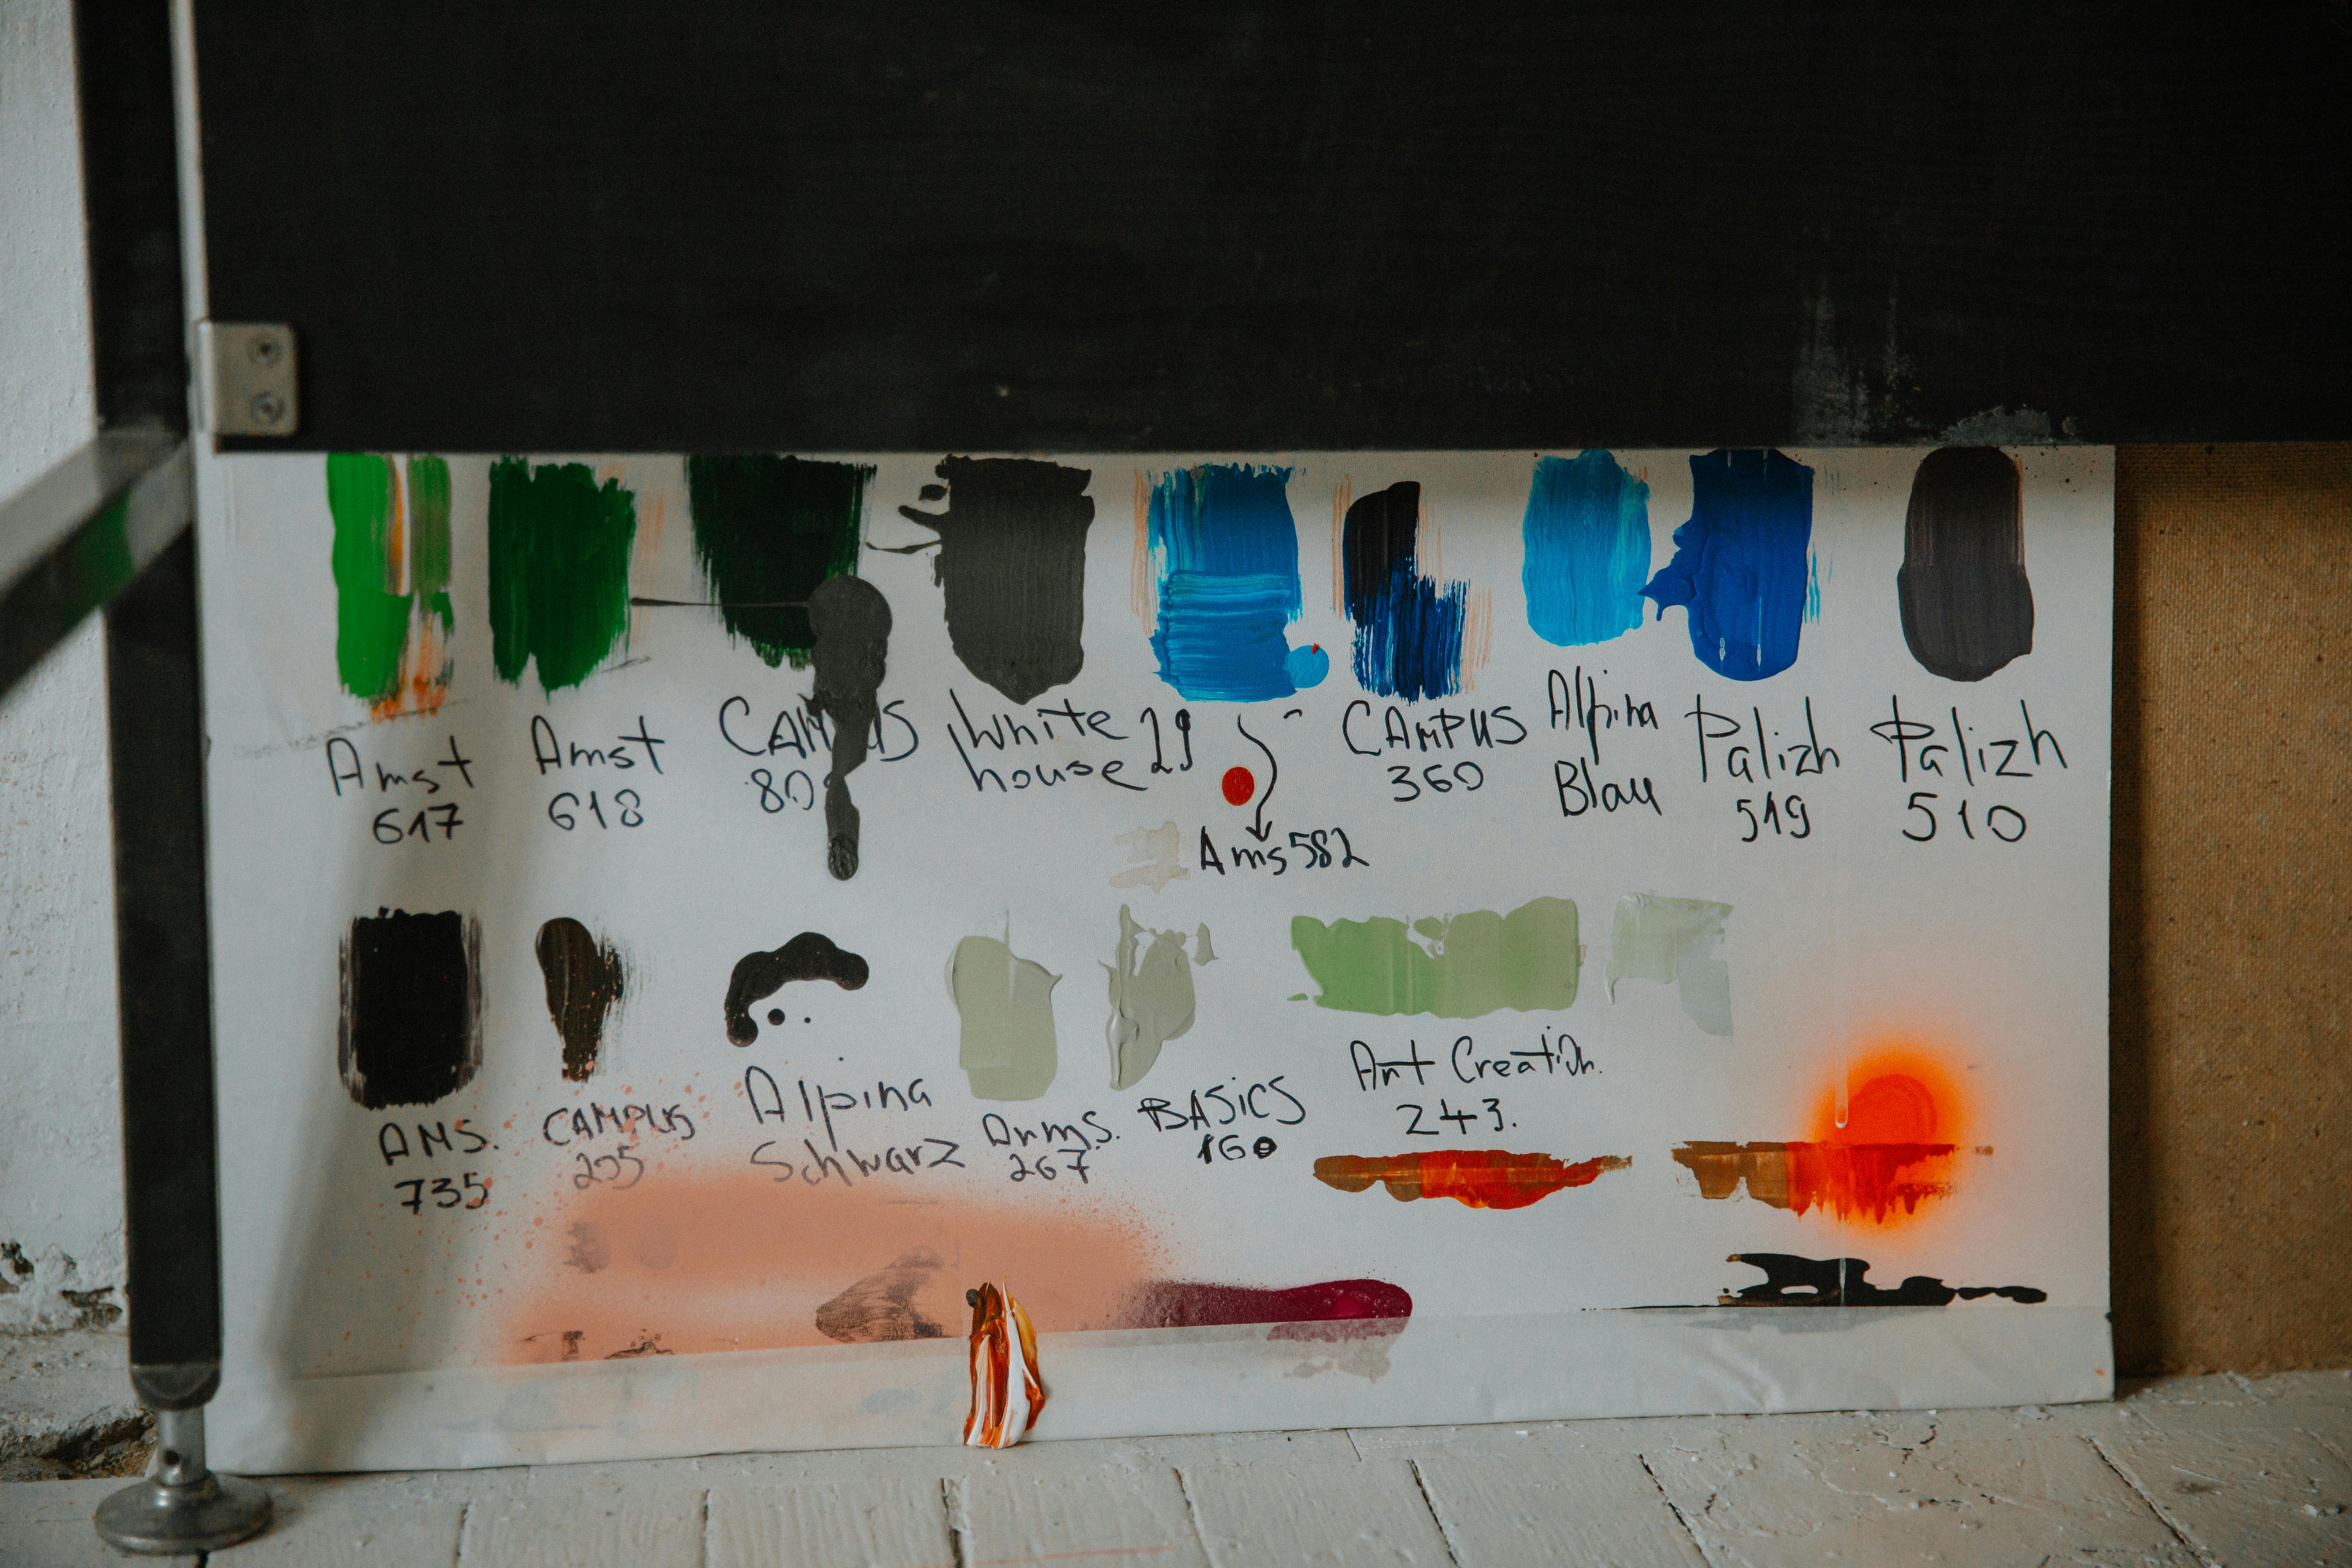 Amst
617
Amst
618
CAMPUS
White
house 29
Ams 582
CAMPUS
360
Alpina
Blau
Palizh
519
Palizh
510
AMS.
735
CAMPUS
205
Alpina
Schwarz
267
BASiCS
160
Art Creation.
243.